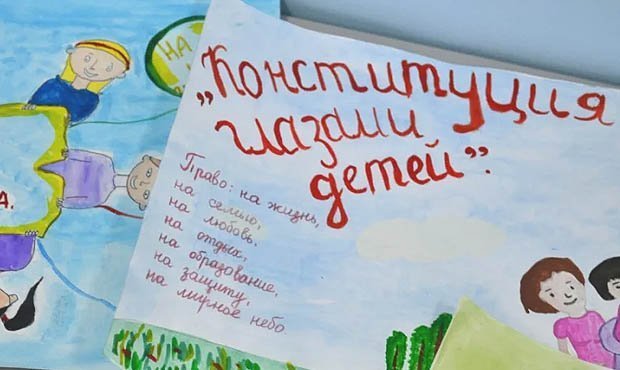 НА
А.
„Конституция
глазами
детей".
Право: на жизнь,
на семью,
на любовь,
на отдых,
на образавание,
на защиту,
на мирное небо.